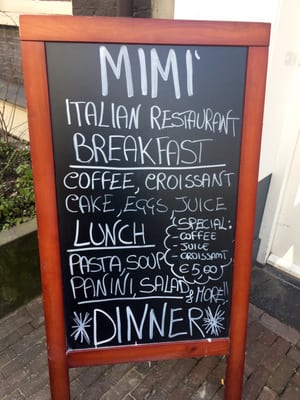 MIMI'
ITALIAN RESTAURANT
BREAKFAST
COFFEE, CROISSANT
CAKE, EGGS, JUICE
LUNCH
PASTA, SOUP
PANINI, SALAD
& MORE!!
SPECIAL:
- COFFEE
- JUICE
- CROISSAMT
€ 5,00
DINNER